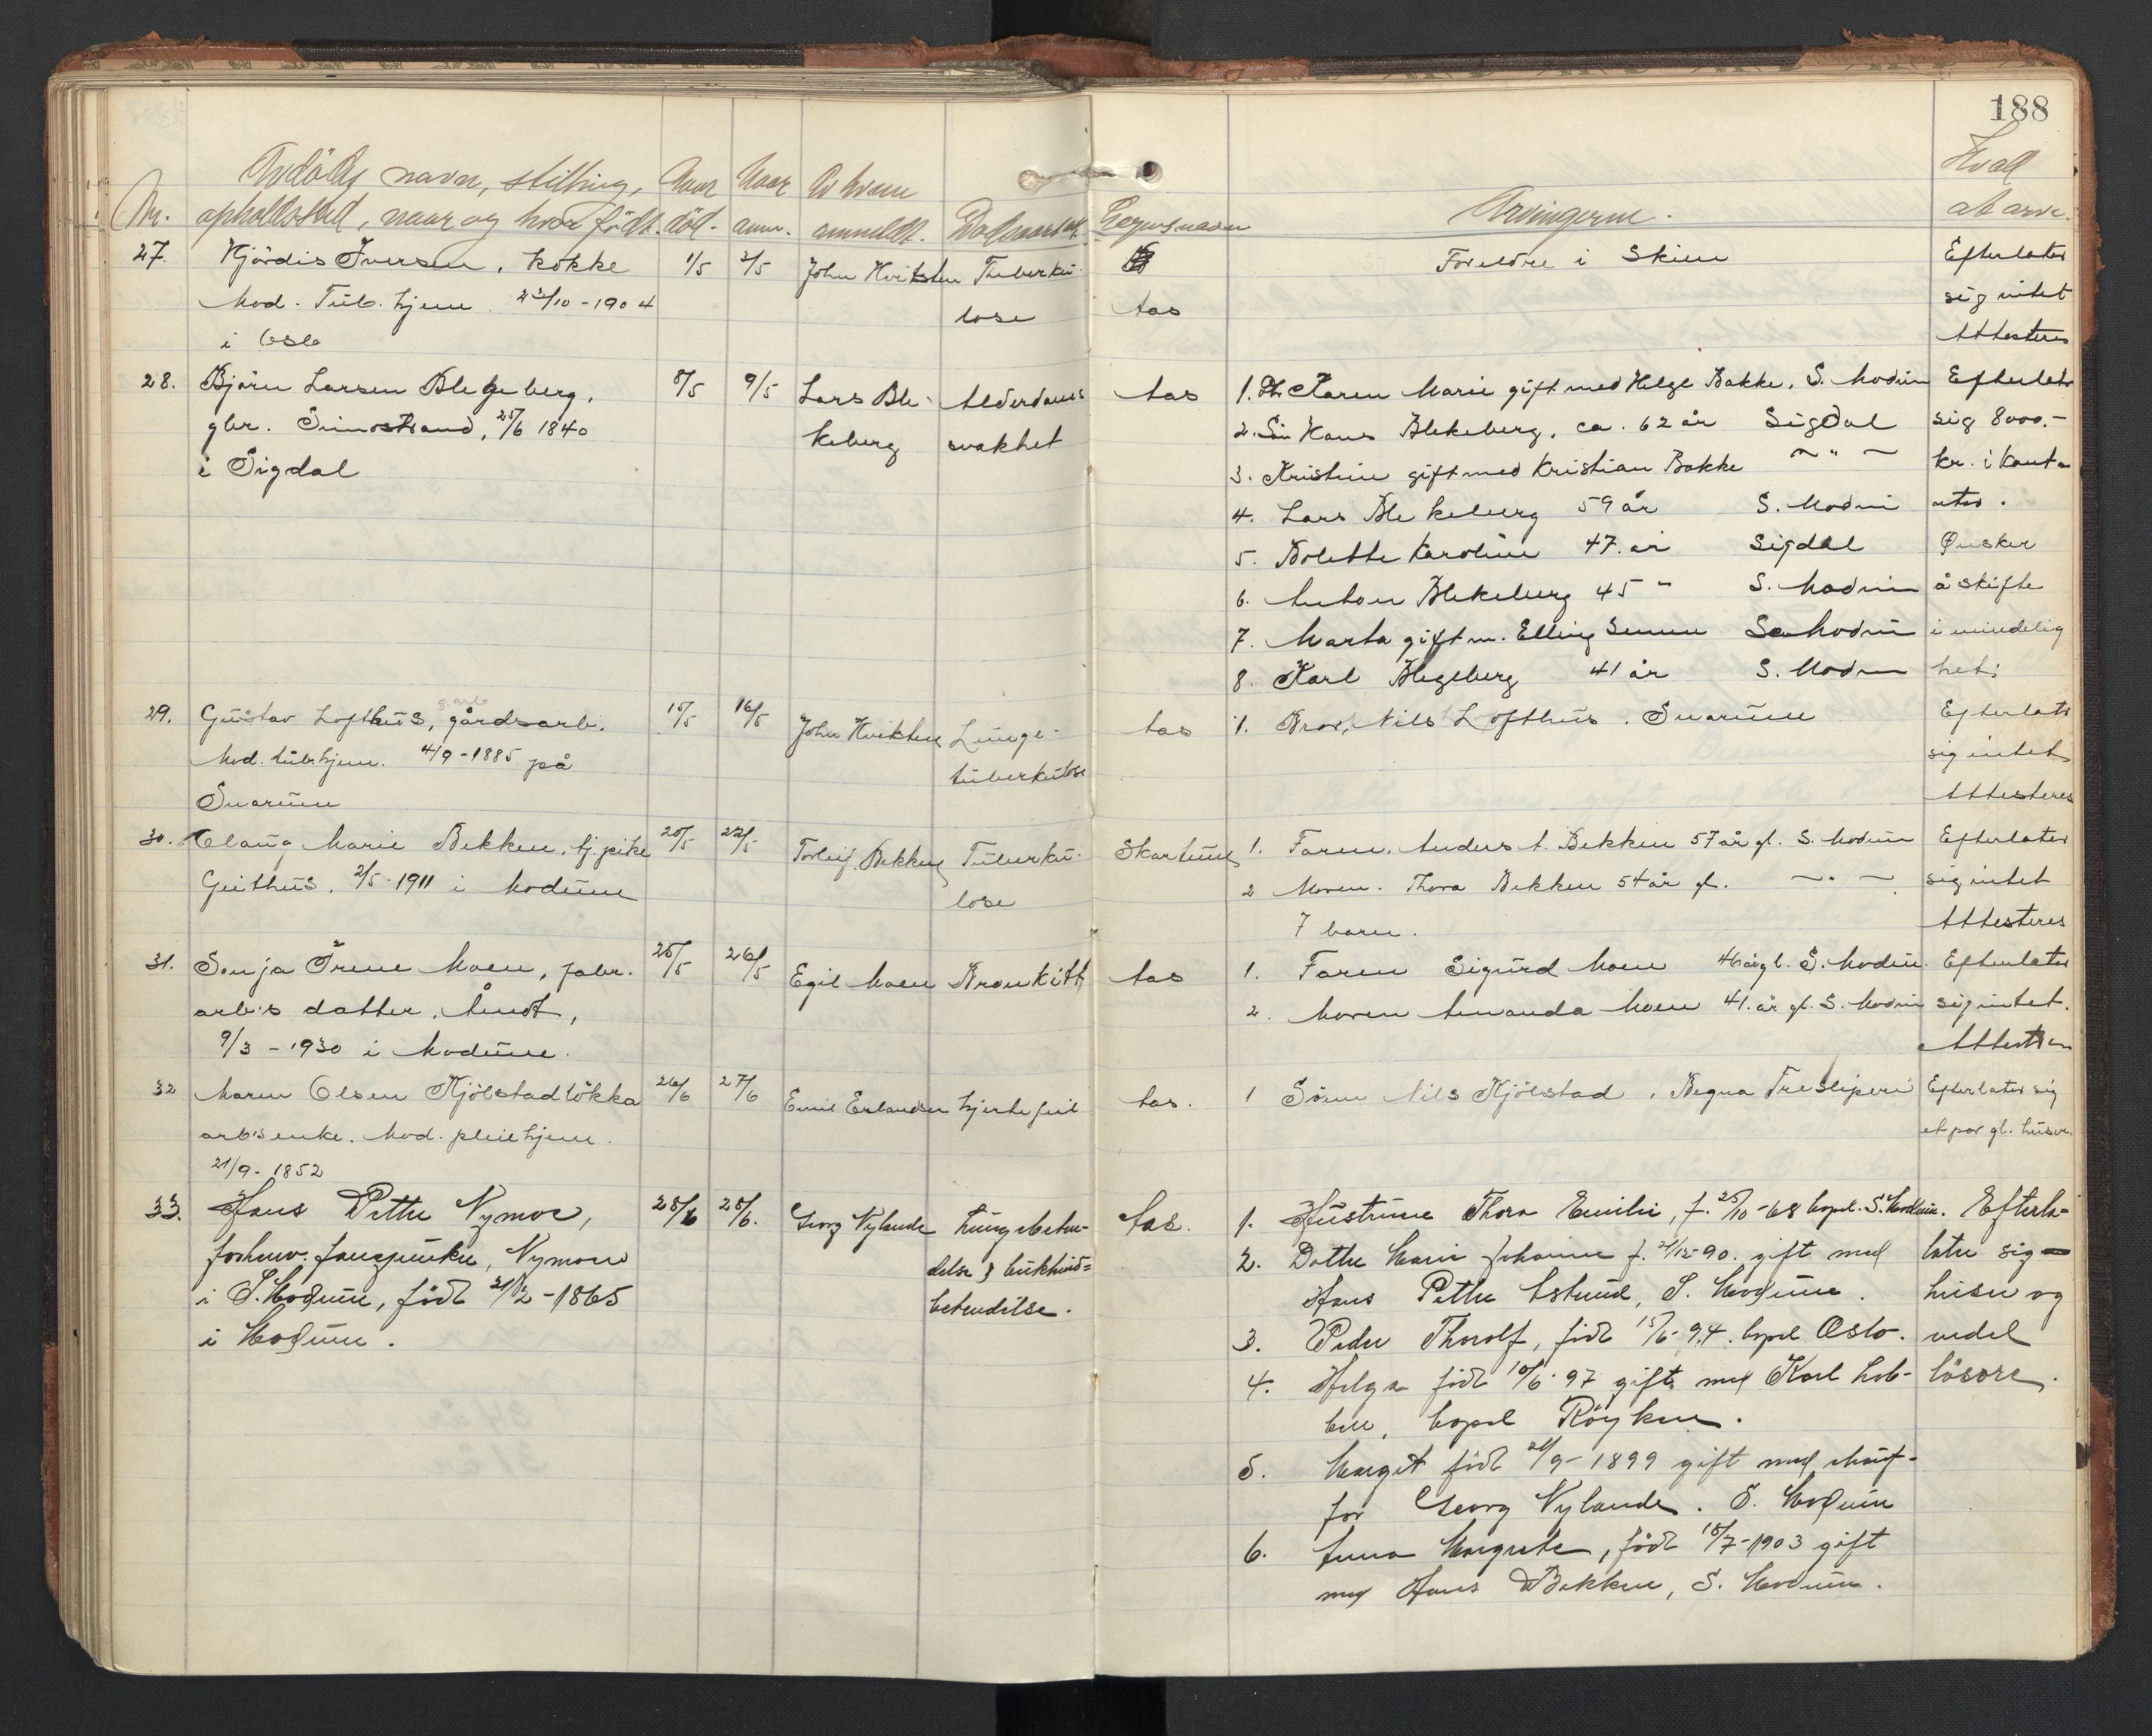 188
Nr. Avdødes navn, stilling, opholdssted, naar og hvor født. Naar død. Naar anm. Av hvem anmeldt. Dødsaarsak. Lægens navn Arvingerne. Hvad at arve.
27. Hjördis Iversen, kokke 1/5 2/5 John Hviksten Tuberku- Foreldre i Skien Efterlater
Mod. Tub. hjem. 1904 lose Aas sig intet
i Oslo Attesteres
28. Björn Larsen Blegeberg, 8/5 9/5 Lars Ble- Alderdoms Aas 1. Karen Marie gift med Helge Bakke, S. Modum Efterlater
gbr. Simostrand, 25/6 1840 keberg svakhet 2. Sön Hans Blekeberg, ca. 62 år Sigdal sig 8000.-
i Sigdal 3. Kristine gift med Kristian Bakke ~ " ~ kr. i kont-
4. Lars Blekeberg 59 år S. Modum anter.
5. Bolette Karoline 47. år Sigdal Ønsker
6. Anton Blekeberg 45 " S. Modum å skifte
7. Marta gift m. Elling S. Modum i mindelig
8. Karl Blegeberg 41 år S. Modum het.
29. Gustav Lofthus, gårdsarb. 15/5 16/5 John Hviksten Lunge- Aas 1. Bror, Nils Lofthus. Snarum Efterlater
Mod. tub. hjem. 4/9-1885 på tuberkulose sig intet
Snarum Attesteres
30. Olaug Marie Bekken, hj. pike 20/5 22/5 Torleif Bekken Tuberku- Skartum 1. Faren, Anders A. Bekken 57 år gl. S. Modum Efterlater
Geithus, 2/5-1911 i Modum lose 2 Moren. Thora Bekken 54 år gl. ~ " ~ sig intet
7 barn. Attesteres
31. Sonja Irene Moen, fabr. 25/5 26/5 Egil Moen Bronkitt Aas 1. Faren Sigurd Moen 46 år gl. S. Modum. Efterlater
arb's datter, Åmot, 2. Moren Amanda Moen 41. år gl. S. Modum sig intet.
9/3-1930 i Modum. Attesteres
32 Maren Olsen Kjölstadlökka 26/6 27/6 Emil Erlandsen Hjertefeil Aas. 1 Sönn Nils Kjölstad, Begna Tresliperi Efterlater sig
arb's enke. Mod. pleiehjem. et par gl. huser.
21/9-1852
33. Hans Petter Nymoe, 28/6 28/6. Georg Nylande Lungebeten- Aas. 1. Hustrue Thora Emilie, f. 25/10-68 bopel. S. Modum. Efterla-
forhenv. Nymoen delse & bukhind= 2. Datter Marie Johanne f. 90. gift med later sig
i S. Modum, født 21/2-1865 betendelse. Hans Petter Aslund, S. Modum. huser og
i Modum. 3. Peder Thorolf, född 15/6-94. bopel Oslo. endel
4. Helga född 10/6-97 gift med Karl Lob- lösöre.
ben, bopel Röyken.
5. Margit född 21/9-1899 gift med chauf-
för Georg Nylande. S. Modum
6. Anna Margrete, född 18/7-1903 gift
med Hans Bekken, S. Modum.